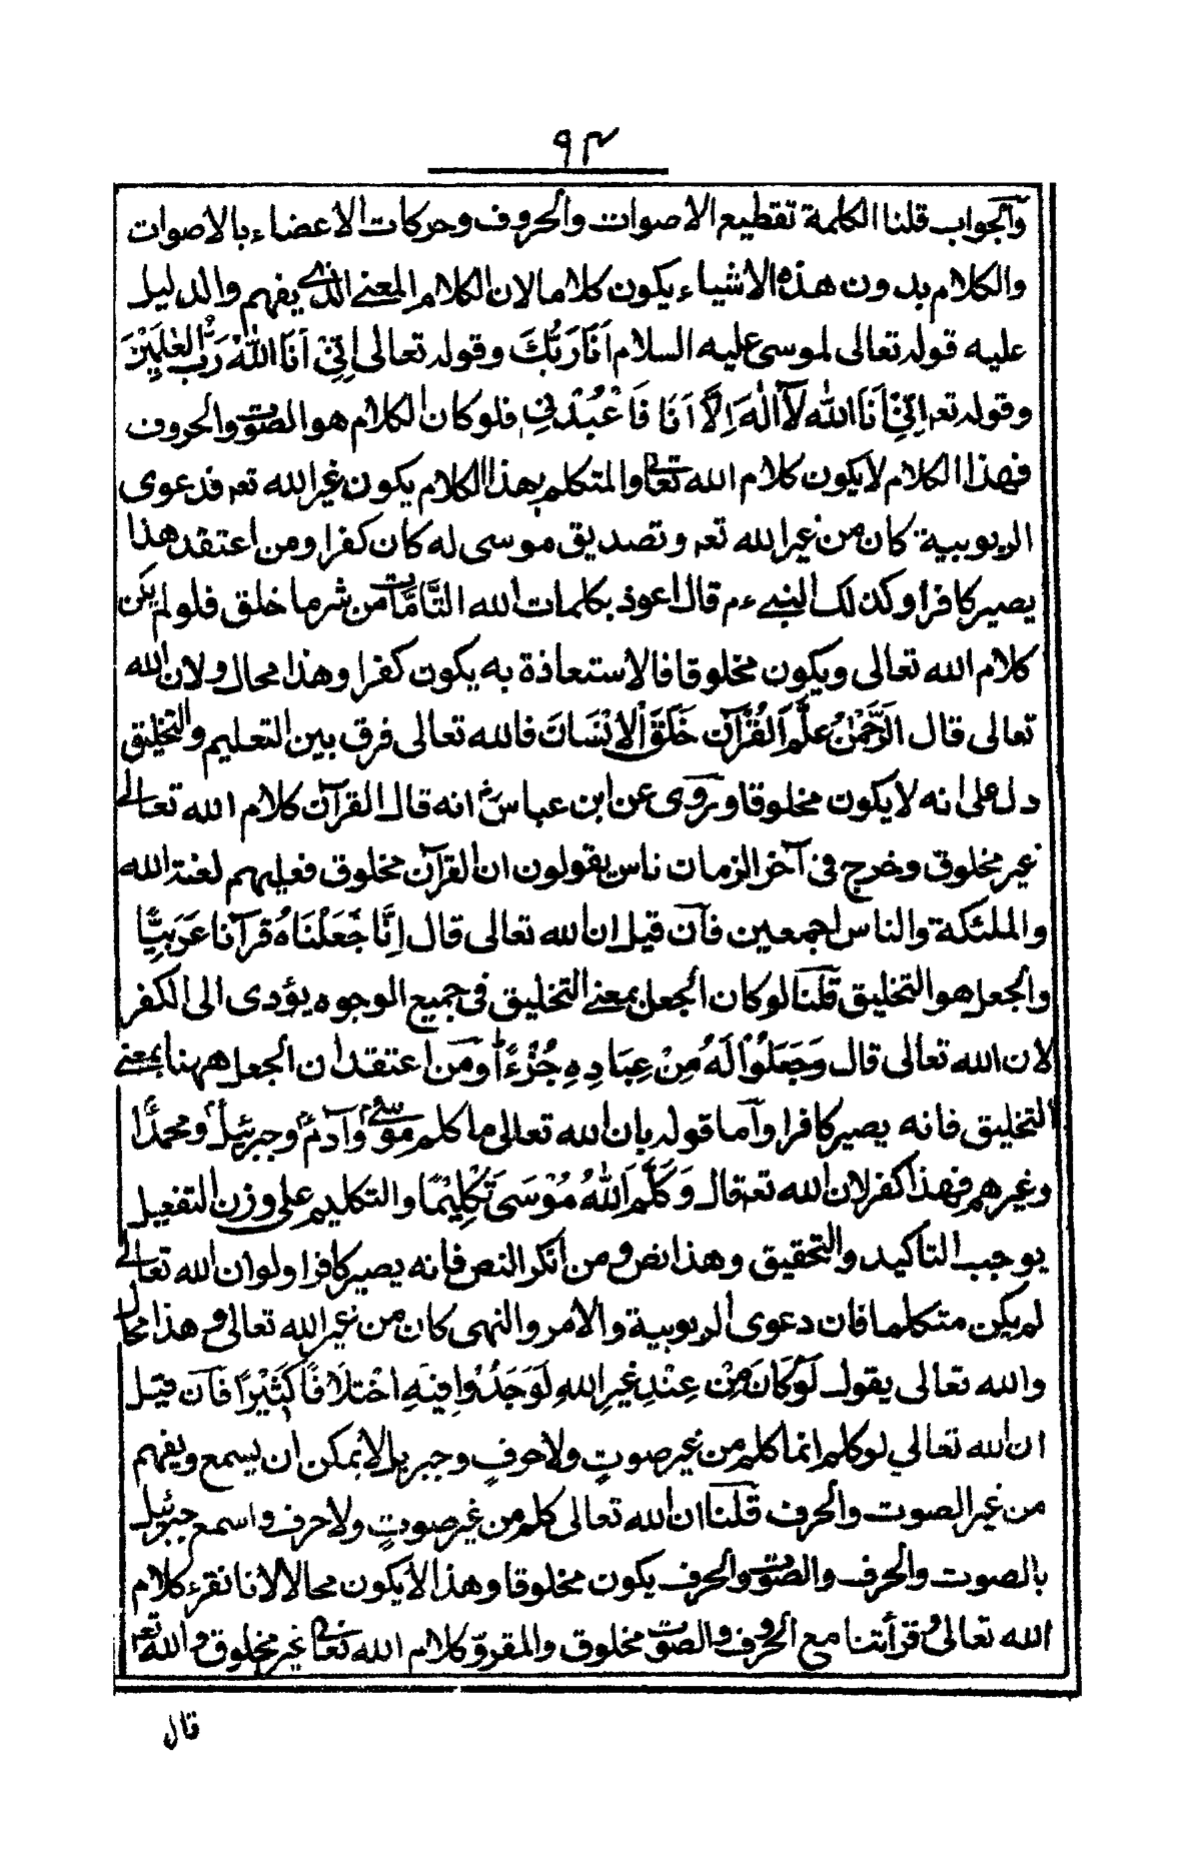 ٩٣
والجواب قلنا الكلمة تقطيع الاصوات والحروف وحركات الاعضاء بالاصوات
والكلام بدون هذه الاشياء يكون كلاما لان الكلام المعنى الذى يفهم والدليل
عليه قوله تعالى لموسى عليه السلام اَنَا رَبُّكَ وقوله تعالى اِنِّىْ اَنَا اللّٰهُ رَبُّ الْعٰلَمِيْنَ
وقوله تعـ اِنَّنِىْ اَنَا اللّٰه لَآ اِلٰهَ اِلَّا اَنَا فَاعْبُدْنِىْ فلو كان الكلام هو الصوت والحروف
فهذا الكلام لا يكون كلام الله تعالى والمتكلم بهذا الكلام يكون غير الله تعـ فدعوى
الربوبية كان من غير الله تعـ وتصديق موسى له كان كفرا ومن اعتقد هذا
يصير كافرا وكذلك النبى ءم قال اعوذ بكلمات الله التَّامَّات من شر ما خلق فلو لم يكن
كلام الله تعالى ويكون مخلوقا فالاستعاذة به يكون كفرا وهذا محال ولان الله
تعالى قال اَلرَّحْمٰنُ عَلَّمَ الْقُرْآنَ خَلَقَ الْاِنْسَانَ فالله تعالى فرق بين التعليم والتخليق
دل على انه لا يكون مخلوقا وروى عن ابن عباس رض انه قال القرآن كلام الله تعالى
غير مخلوق وخرج فى آخر الزمان ناس يقولون ان القرآن مخلوق فعليهم لعنة الله
والملئكة والناس اجمعين فآن قيل ان الله تعالى قال اِنَّا جَعَلْنَاهُ قرآنا عَرَبِيًّا
والجعل هو التخليق قلنا لو كان الجعل بمعنى التخليق فى جميع الوجوه يؤدى الى الكفر
لان الله تعالى قال وَجَعَلُوْا لَهُ مِنْ عِبَادِهِ جُزْءًا ومن اعتقد ان الجعل ههنا بمعنى
التخليق فانه يصير كافرا وآما قوله بان الله تعالى ما كلم موسى وآدم وجبرئيل ومحمدًا
وغيرهم فهذا كفر لان الله تعـ قال وَكَلَّمَ اللّٰهُ مُوْسَى تَكْلِيْمًا والتكليم على وزن التفعيل
يوجب التاكيد والتحقيق وهذا نص ومن انكر النص فانه يصير كافرا ولو ان الله تعالى
لم يكن متكلما فان دعوى الربوبية والامر والنهى كان من غير الله تعالى وهذا محال
والله تعالى يقول لَوْ كَانَ مِنْ عِنْدِ غَيْرِ اللهِ لَوَجَدُوْا فِيْهِ اخْتِلَافًا كَثِيْرًا فآن قيل
ان الله تعالى لو كلم انما كلم من غير صوتٍ ولا حرفٍ وجبريل لا يمكن ان يسمع ويفهم
من غير الصوت والحرف قلنا ان الله تعالى كلم من غير صوتٍ ولا حرف واسمع جبرئيل
بالصوت والحرف والصوت والحرف يكون مخلوقا وهذا لا يكون محالا لانا نقرء كلام
الله تعالى وقرأتنا مع الحروف والصوت مخلوق والمقروّ كلام الله تعالى غير مخلوق والله تعـ
قال